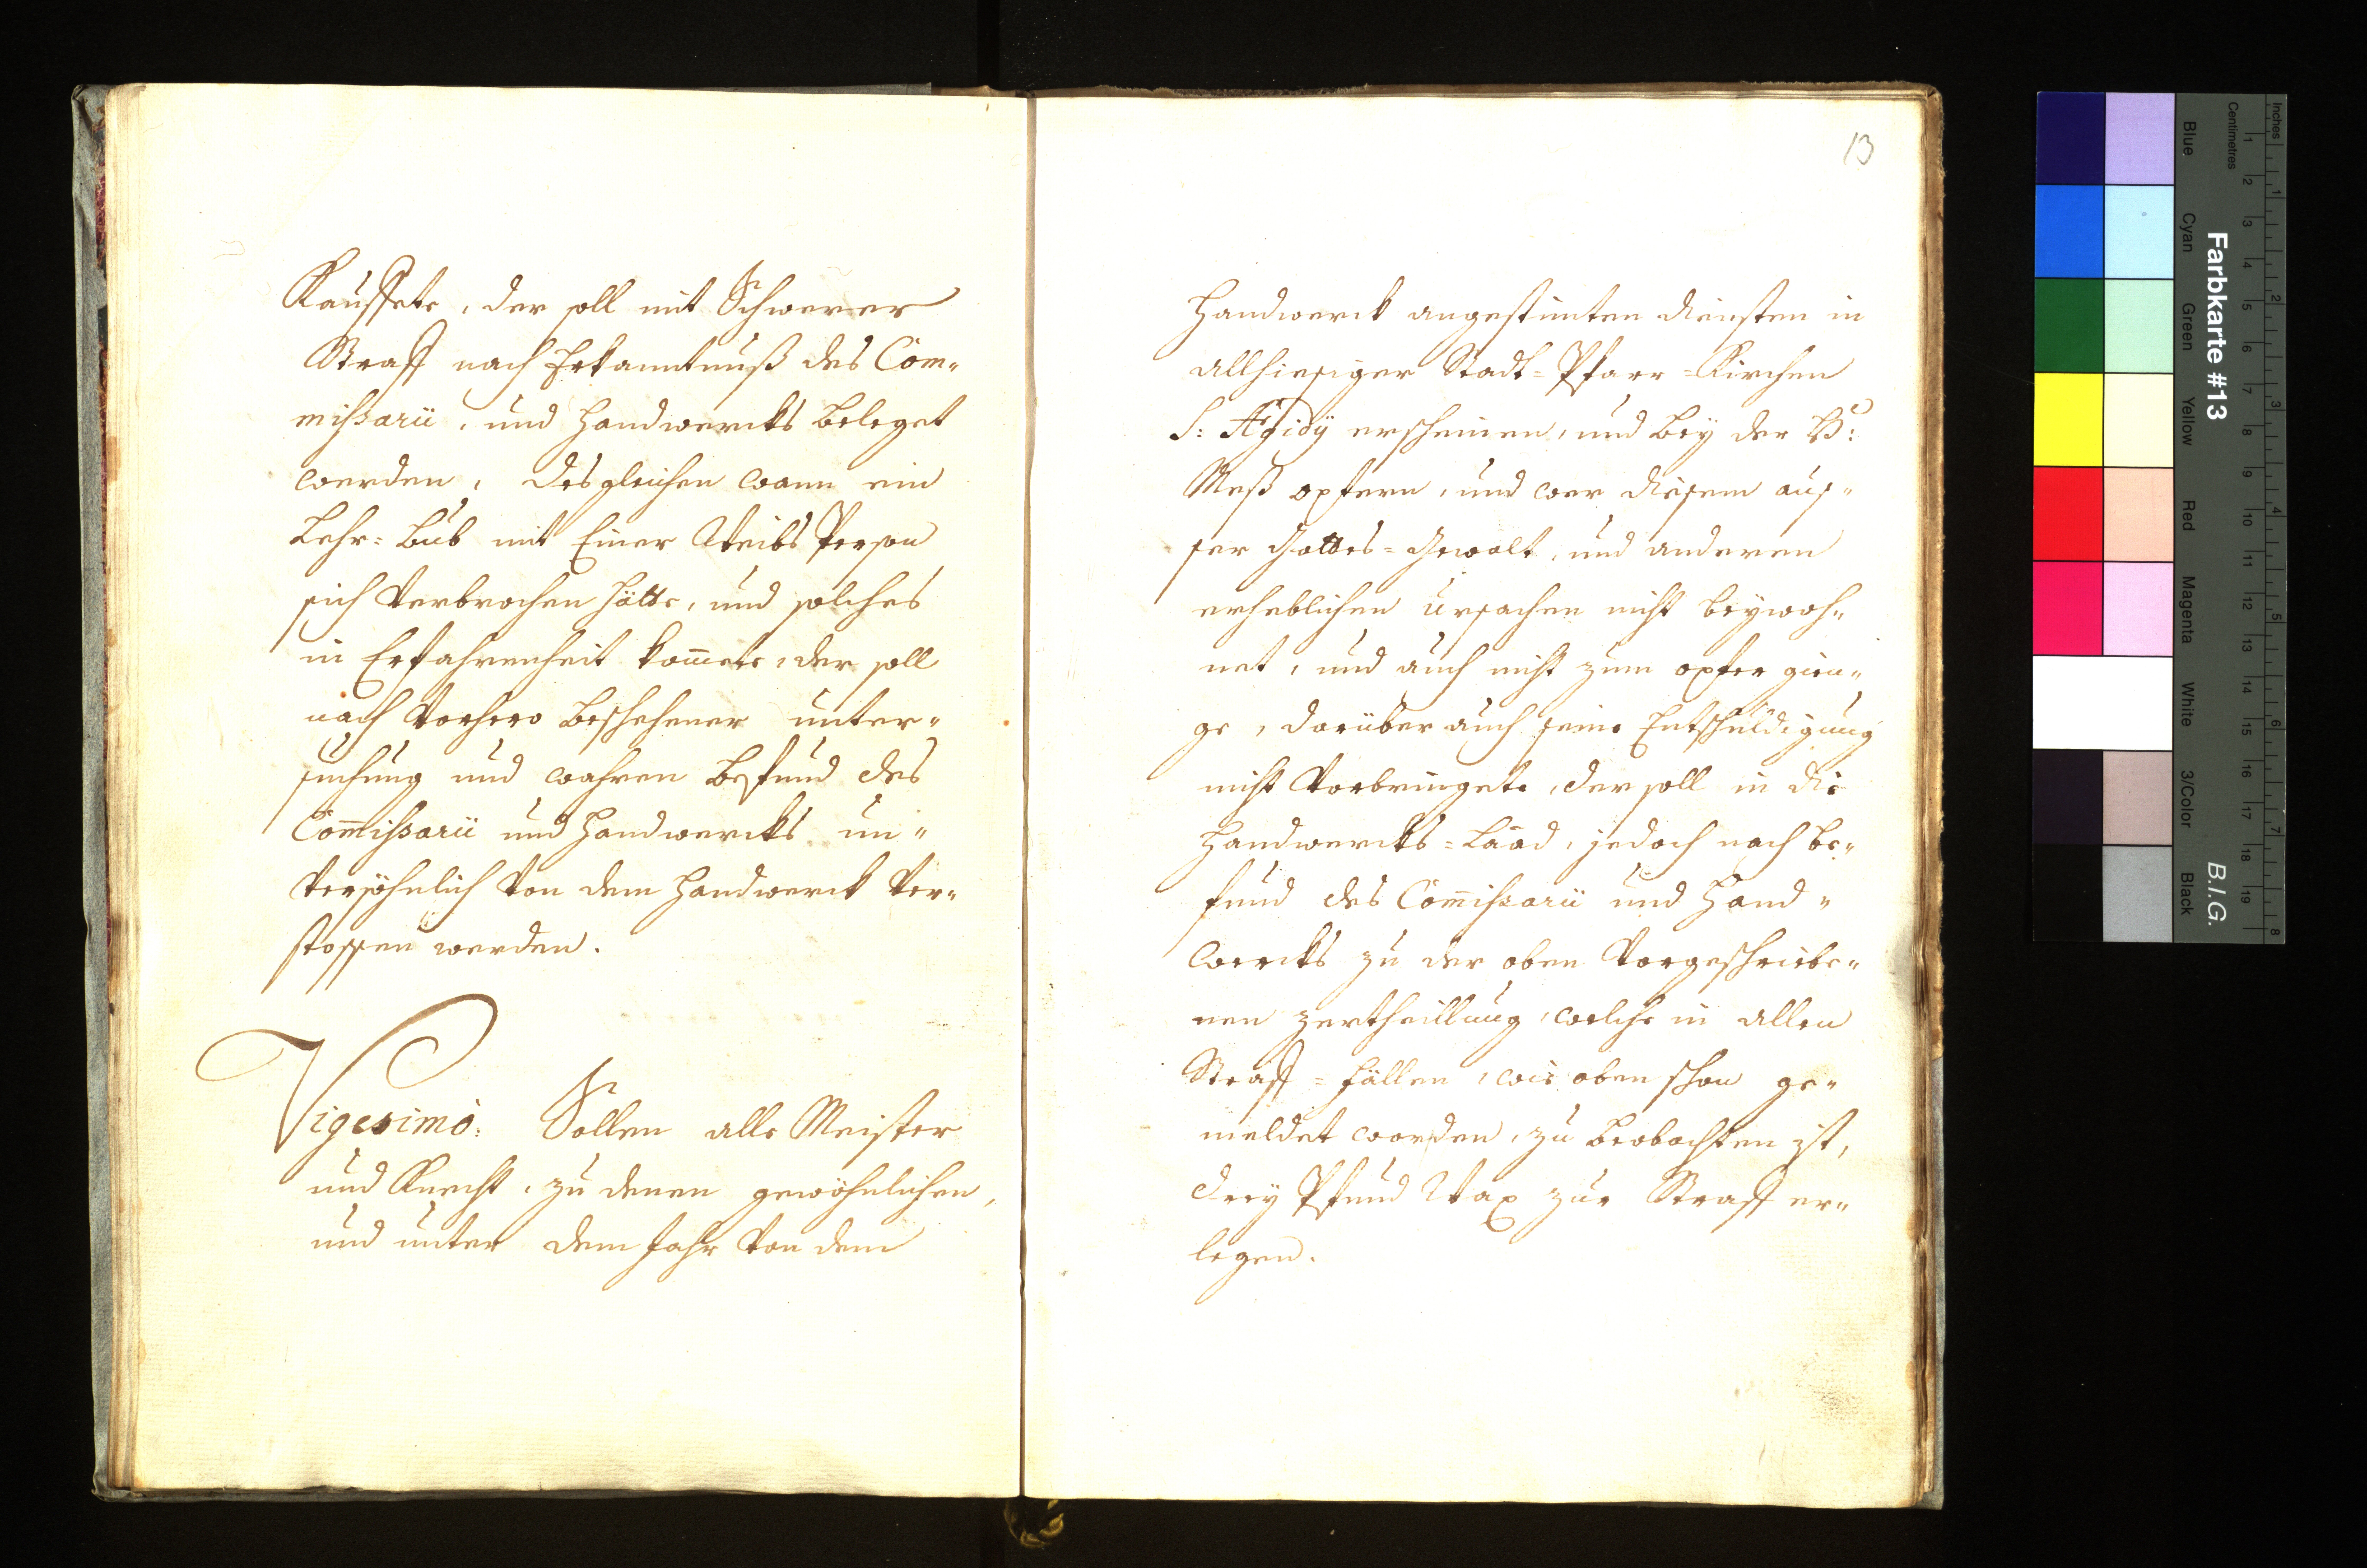 Kauffete, der soll mit Schwerer
Straff nach Erkanntnuß des Com„
mißarii, und Handwercks beleget
werden, desgleichen wann ein
Lehr=bub mit Einer Weibs Person
sich Verbrochen hätte, und solches
in Erfahrenheit kom̄ete, der soll
nach Vorhero beschehener unter„
suchung und wahren befund des
Com̄ißarii und Handwercks un„
Versöhnlich Von dem Handwerck Ver„
stossen werden.
Vigesimò: Sollen alle Meister
und Knecht, zu denen gewöhnlichen,
und unter dem Jahr Von dem
13
Handwerck angestimten diensten in
allhiesiger Stadt=Pfarr=Kirchen
S: Ægidÿ erscheinen, und beÿ der H:
Meß opfern, und wer diesem auß„
ser Gottes=Gewalt, und anderen
erheblichen ursachen nicht beÿwoh„
net, und auch nicht zum opfer gien„
ge, darüber auch seine Entschuldigung
nicht Vorbringete, der soll in die
Handwercks=Laad, jedoch nach be„
fund des Com̄ißarii und Hand„
wercks zu der oben Vorgeschriebe„
nen zertheillung, welche in allen
Straff=fällen, wie oben schon ge„
meldet worden, zu beobachten ist,
dreÿ Pfund Wax zur Straff er„
legen.
Farbkarte #13
B.I.G.
Inches
Centimetres
Blue
Cyan
Green
Yellow
Red
Magenta
White
3/Color
Black
1 2 3 4 5 6 7 8 9 10 11 12 13 14 15 16 17 18 19
1 2 3 4 5 6 7 8